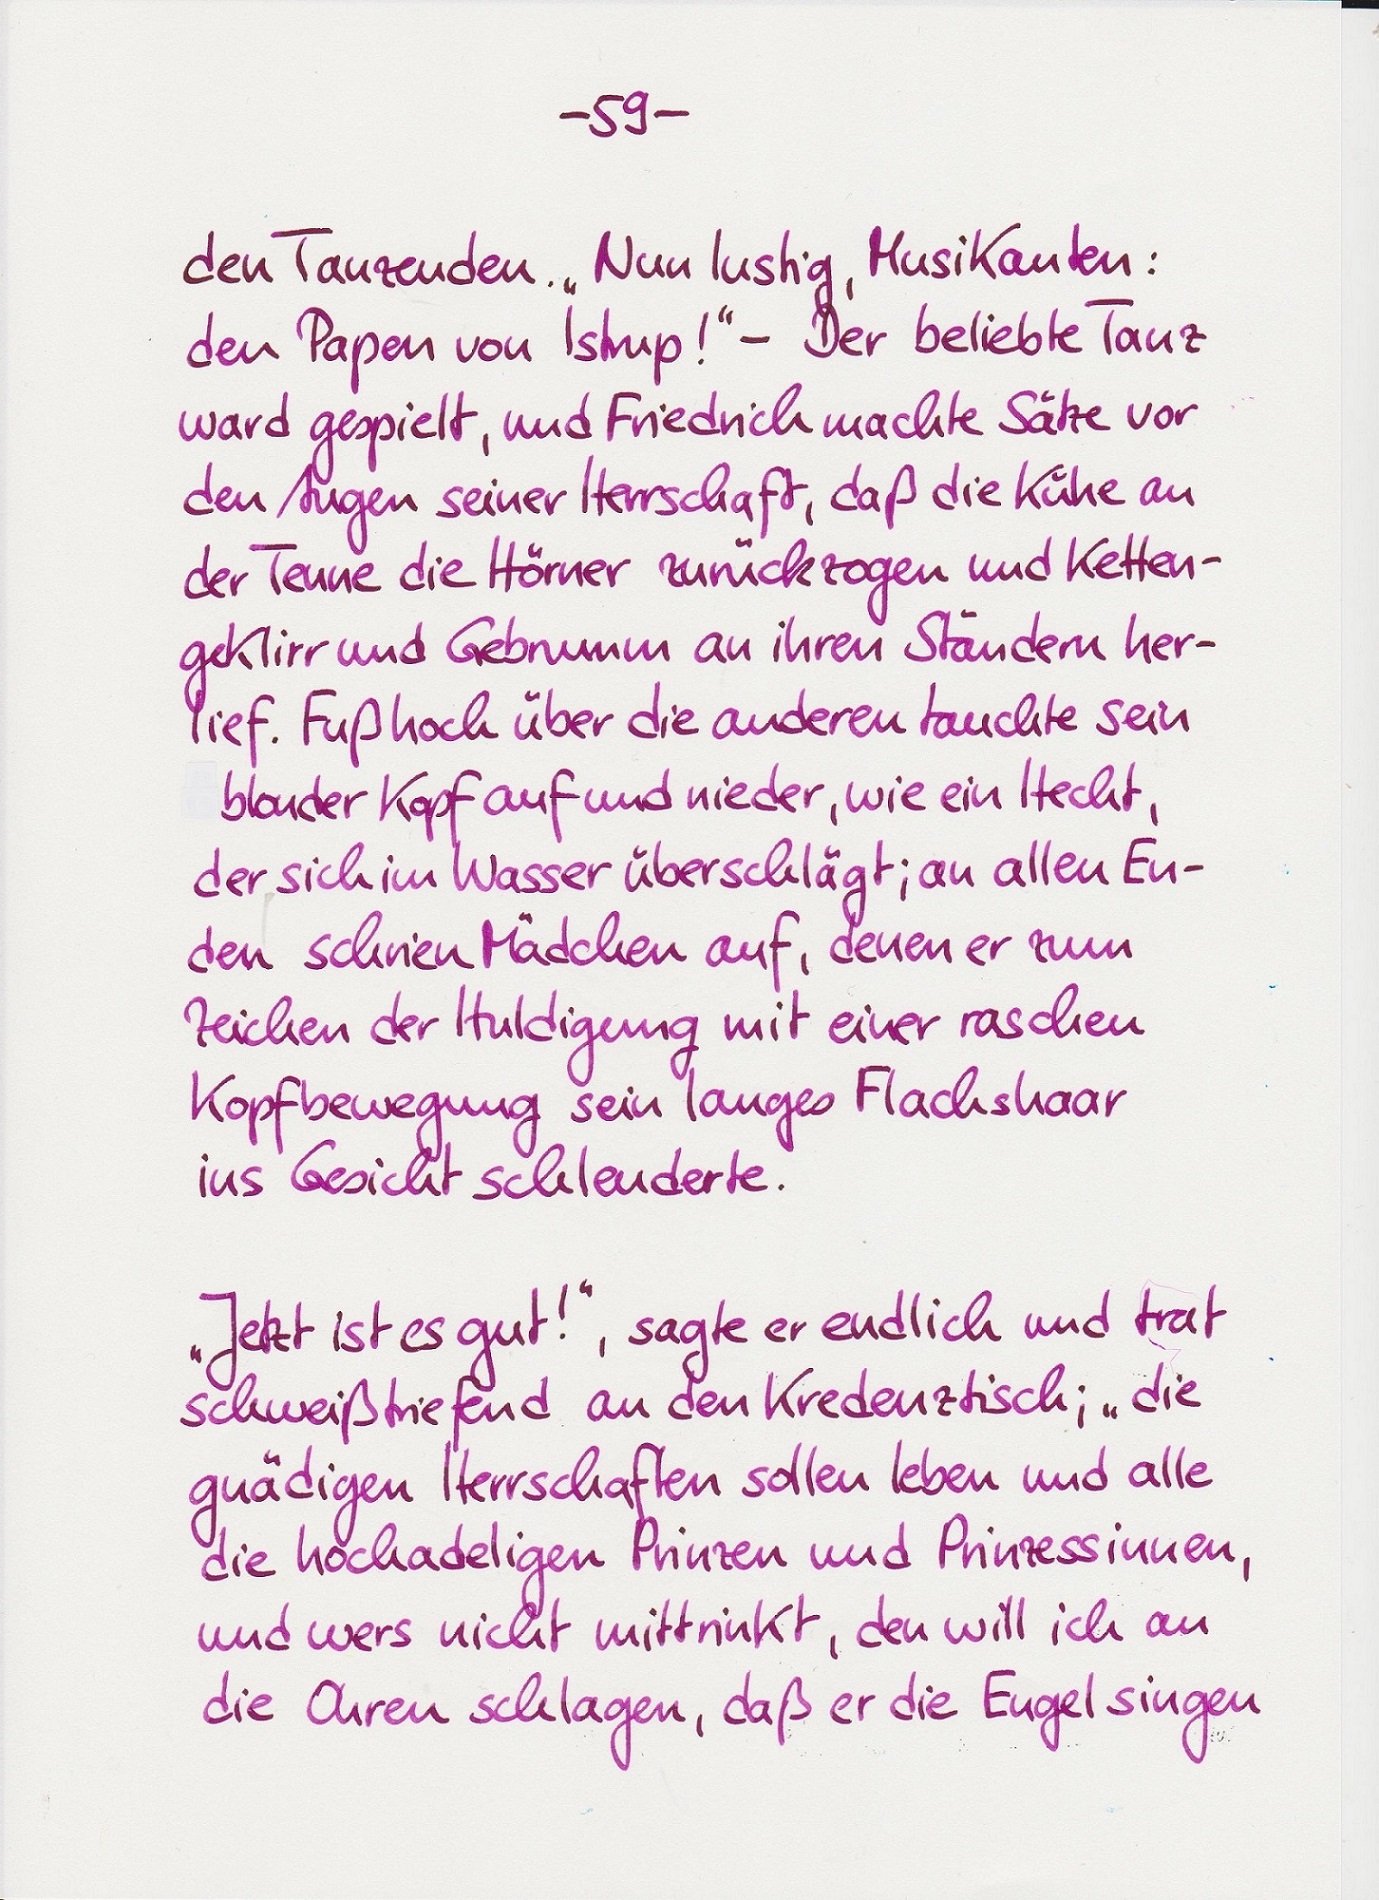 -59-
den Tanzenden. „Nun lustig, Musikanten:
den Papen von Istrup!“ – Der beliebte Tanz
ward gespielt, und Friedrich machte Sätze vor
den Augen seiner Herrschaft, daß die Kühe an
der Tenne die Hörner zurückzogen und Ketten-
geklirr und Gebrumm an ihren Ständern her-
lief. Fußhoch über die anderen tauchte sein
blonder Kopf auf und nieder, wie ein Hecht,
der sich im Wasser überschlägt; an allen En-
den schrien Mädchen auf, denen er zum
Zeichen der Huldigung mit einer raschen
Kopfbewegung sein langes Flachshaar
ins Gesicht schleuderte.
„Jetzt ist es gut!“, sagte er endlich und trat
schweißtriefend an den Kredenztisch; „die
gnädigen Herrschaften sollen leben und alle
die hochadeligen Prinzen und Prinzessinnen,
und wers nicht mittrinkt, den will ich an
die Ohren schlagen, daß er die Engel singen